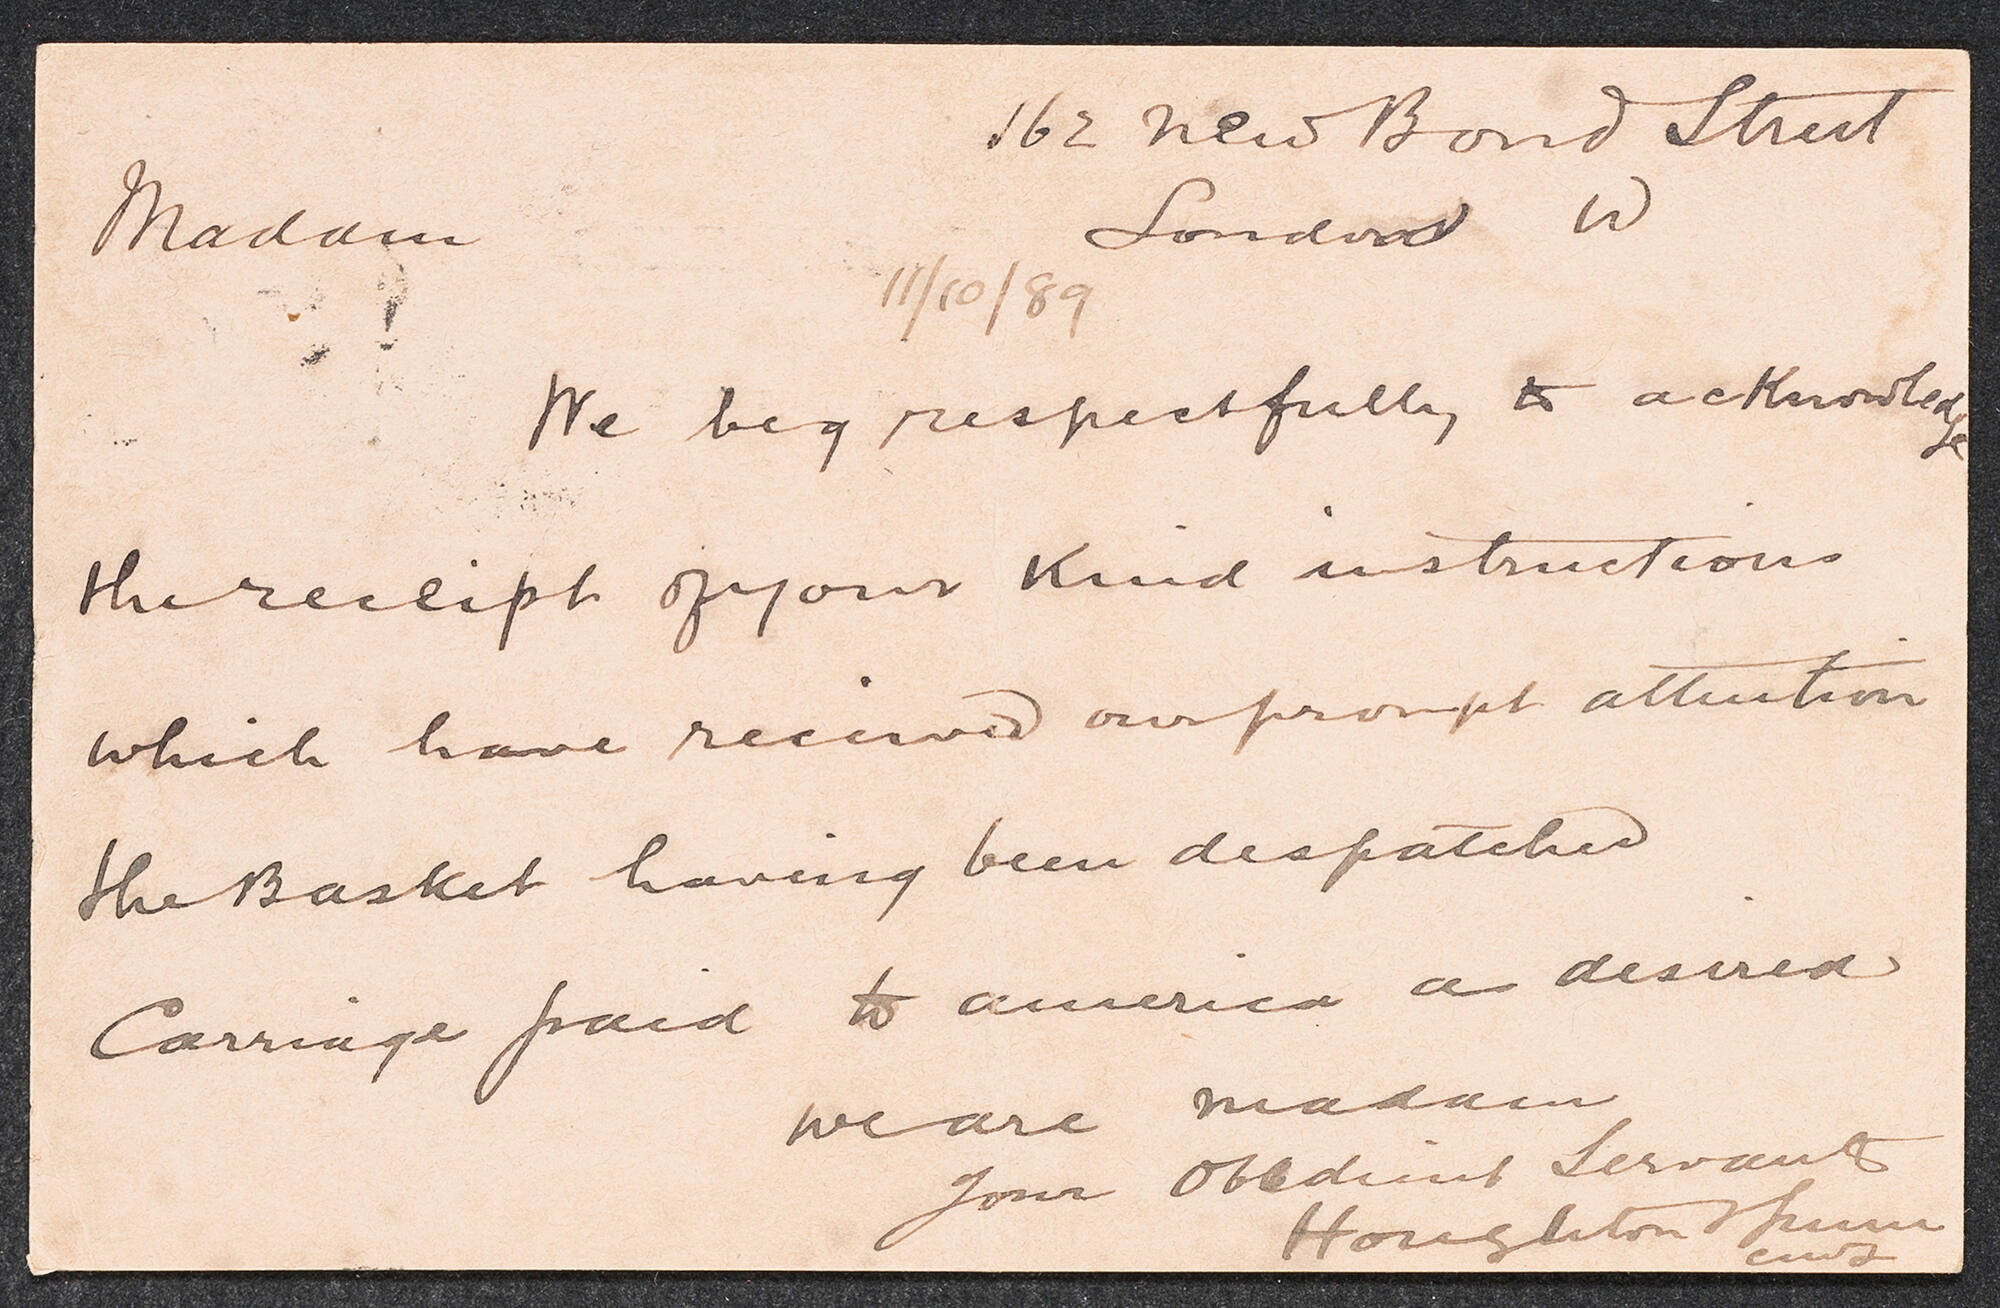 162 New Bond Street
Madam
London W
11/10/89
We beg respectfully to acknowledge
the receipt of your Kind instructions
which have received our prompt attention
the Basket having been despatched
Carriage paid to america as desired
we are madam
your Obedient Servants
Houghton & Gunn